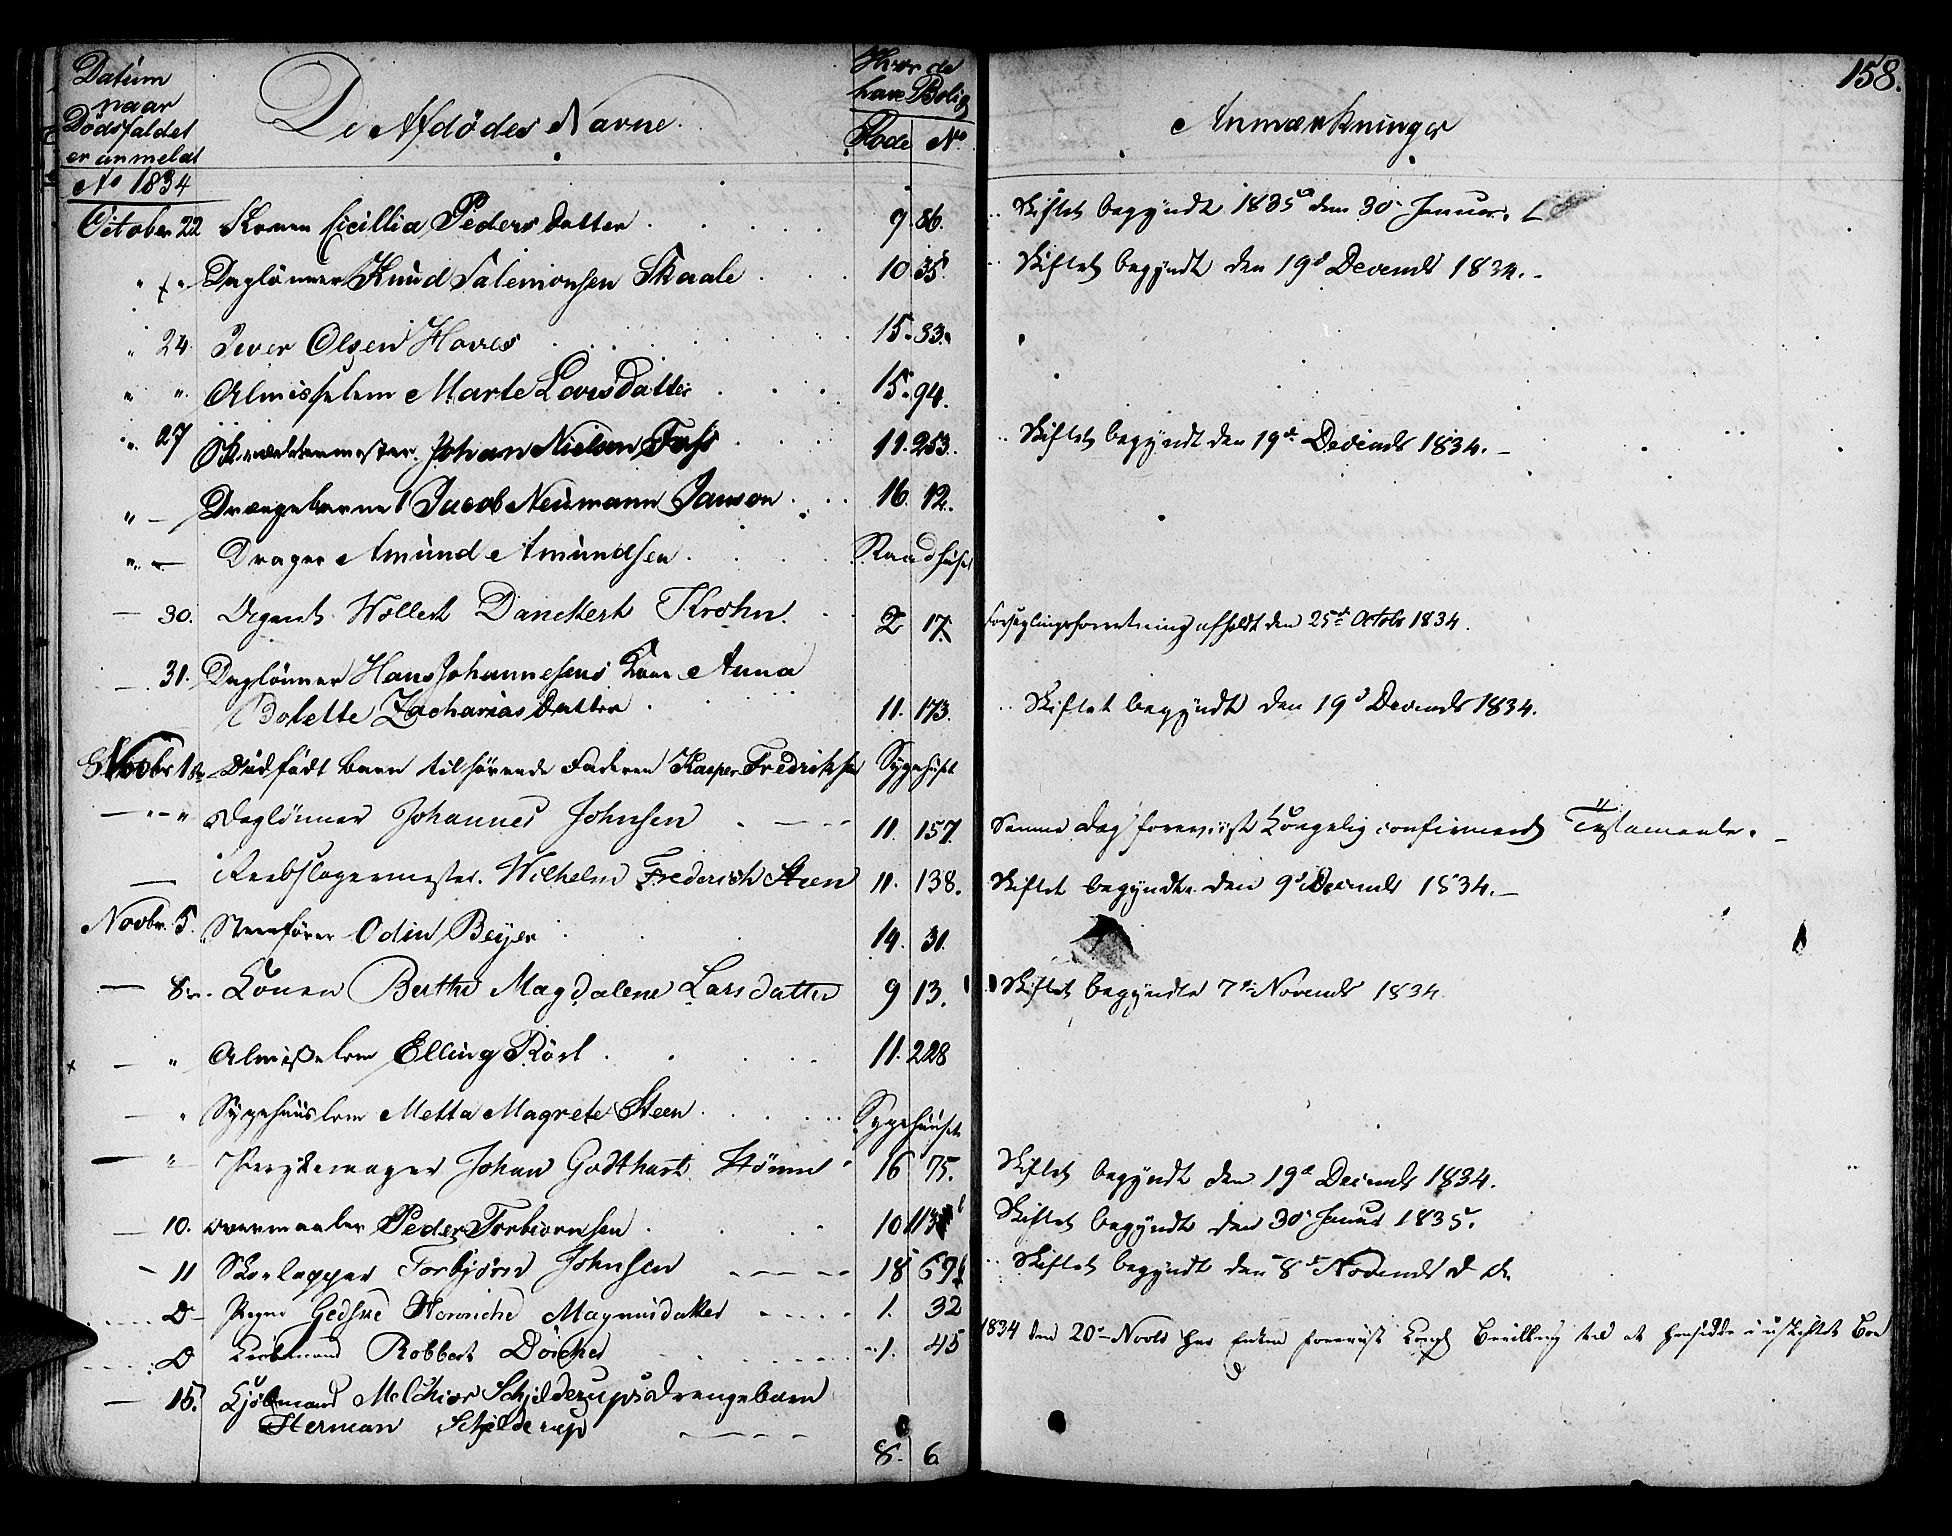 158.
Datum naar Dødsfaldet er anmeldt
De Afdødes Navne.
Hvor de have Bolig
Rode No
Anmærkninger
Ao 1834
October 22 Konen Cicillia Peders datter 9. 86. Skiftet begyndt 1835 den 30 Januar.
" " Daglönner Knud Salemonsen Skaale 10 35. Skiftet begyndt den 19d Decembr 1834.
" 24 Iver Olsen Hovres 15. 33.
" " Almisselem Marte Larsdatter 15. 94.
" 27 Skræddermester Johan Nielsen Foss 11. 253. Skiftet begyndt den 19d Decembr 1834.
" — Drengebarnet Jacob Neumann Janson 16. 12.
" — Drager Amund Amundsen Raadhuset
— 30. Agent Wollert Danckert Krohn 2 17. Forseglingsforretning afholdt den 25d Octobr 1834.
— 31. Daglönner Hans Johannesens Kone Anna
Bolette Zacharias datter 11. 173. Skiftet begyndt den 19d Decembr 1834.
Novbr 1 Dødfødt barn tilhørende Faderen Kasper Fredriksen Sygehuset
— " " Daglönner Johannes Johnsen 11. 157. Samme dag foreviist Kongelig confirmeret Testamente.
— Reebslagermester. Wilhelm Frederich Steen 11. 138. Skiftet begyndte den 9d Decembr 1834.
Novbr. 5. Steenfører Odin Beyer 14. 31.
— 8 Konen Berthe Magdalene Larsdatter 9 13. Skiftet begyndte 7de Novembr 1834.
— " Almisselem Elling Rörl 11. 228
— " Sygehuuslem Metta Magrete Steen Sygehuuset
— " Perykemager Johan Godthart Hönne 16 75. Skiftet begyndt den 19d Decembr 1834.
— 10. Peder Torbiornsen 10 113 Skiftet begyndt den 30 Januar 1835.
— 11 Skolapper Torbjörn Johnsen 18 69 Skiftet begyndt den 8d Novembr
D Pigen Gedske Henriche Magnusdatter 1. 32
D Kiöbmand Robbert Döscher 1. 45 1834 den 20 Novbr har Enken foreviist Kongl Bevilling til at hensidde i uskiftet Boe
— 15. Kjöbmand Melchior Schjelderups drengebarn
Herman Schjelderup 8. 6